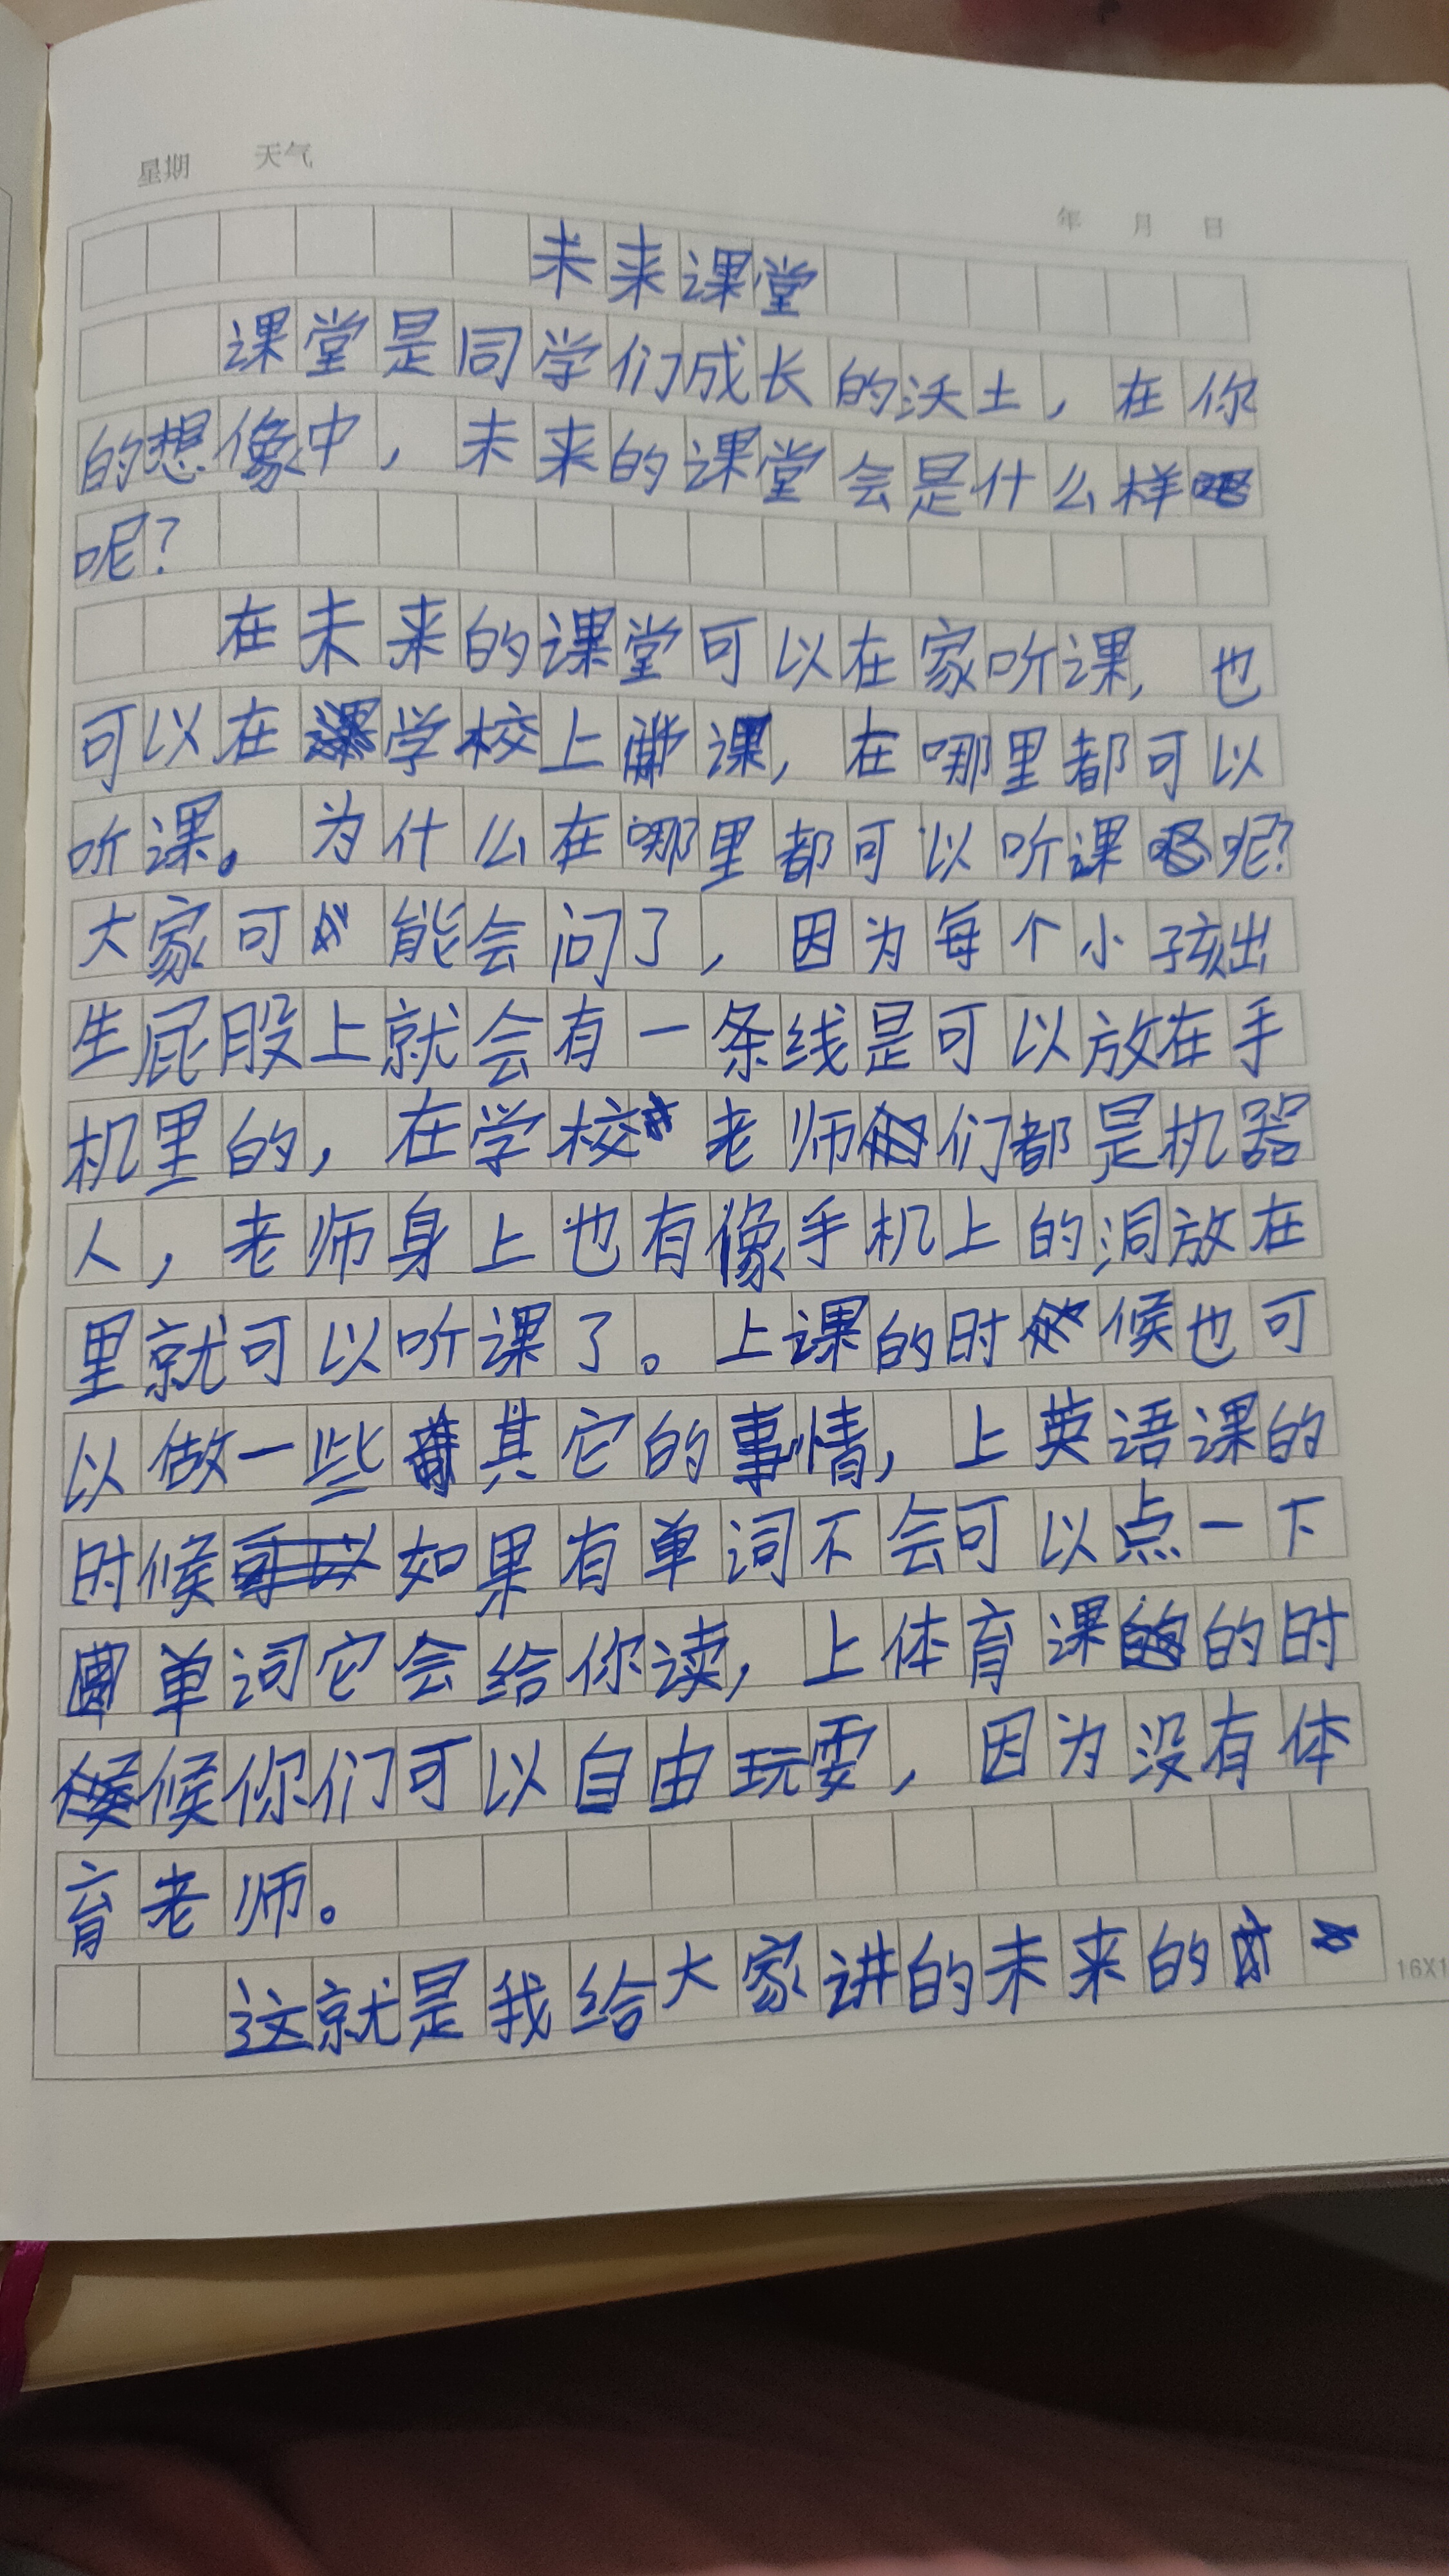 星期 天气
年 月 日
未来课堂
课堂是同学们成长的沃土，在你
的想像中，未来的课堂会是什么样
呢？
在未来的课堂可以在家听课，也
可以在学校上课，在哪里都可以
听课。为什么在哪里都可以听课呢？
大家可能会问了，因为每个小孩出
生屁股上就会有一条线是可以放在手
机里的，在学校老师们都是机器
人，老师身上也有像手机上的洞放在
里就可以听课了。上课的时候也可
以做一些其它的事情，上英语课的
时候如果有单词不会可以点一下
单词它会给你读，上体育课的时
候你们可以自由玩耍，因为没有体
育老师。
这就是我给大家讲的未来的